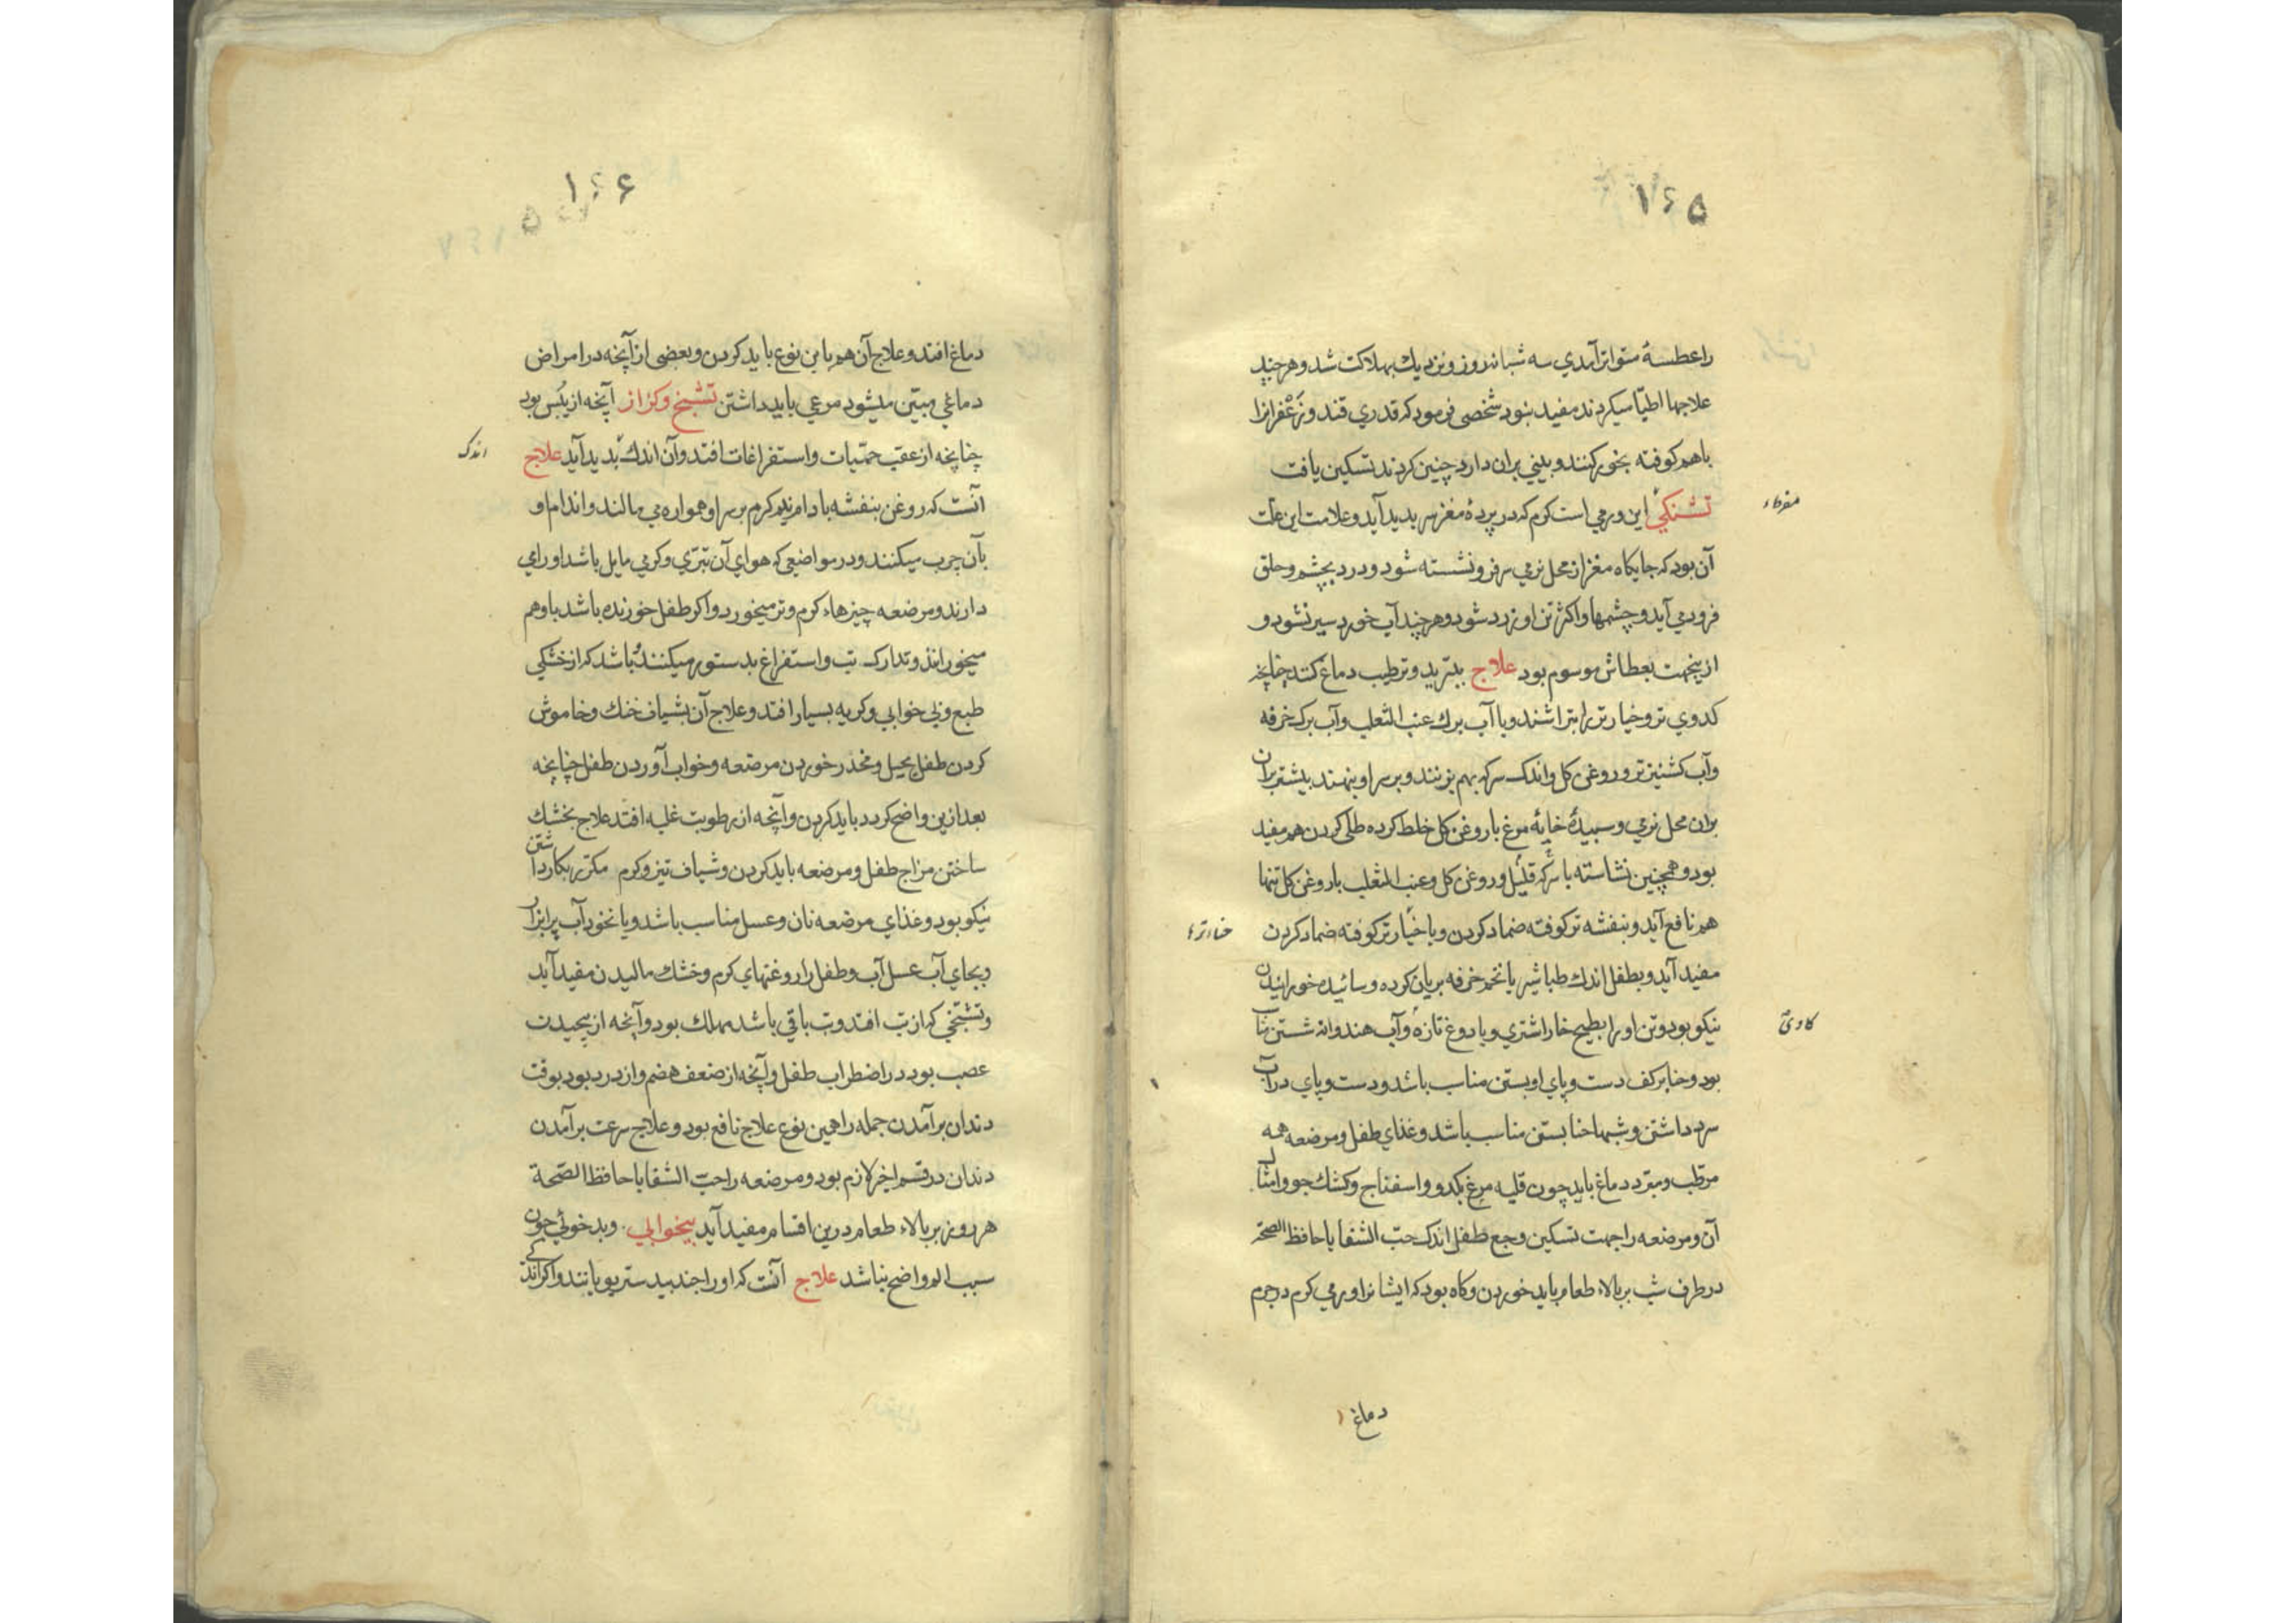 ۱۶۵
را عطسهٔ متواتر آمدي سه شبانروز و نزديك بهلاكت شد و هر چند
علاجها اطبّا ميكردند مفيد نبود شخصى فرمود كه قدري قند و زَعْفرانرا
باهم كوفته بخور كنند و بيني بران دارد چنين كردند تسكين يافت
تشنكي اين ورمي است كرم كه در پردهٔ مغز سر بديد آيد و علامت اين علت
مفرط
آن بود كه جايكاه مغز از محل نرمي سر فرو نشسته شود و درد بچشم و حلق
فرود مي آيد و چشمها و اكثر تن او زرد شود و هر چند آب خورد سير نشود و
ازينجهت بعطاش موسوم بود علاج بتبريد و ترطيب دماغ كنند چنانچه
كدوي تر و خيار تر را بتراشند و با آب برك عنب الثعلب و آب برك خرفه
و آب كشنيز تر و روغن كل و اندك سركه بهم بزنند و بر سر او بنهند بيشتر بران
بران محل نرمي و سپيدهٔ خايهٔ مرغ با روغن كل خلط كرده طلى كردن هم مفيد
بود و همچنين نشاسته با سركه قليل و روغن كل و عنب الثعلب با روغن كل تنها
هم نافع آيد و بنفشه تر كوفته ضماد كردن و يا خيار تر كوفته ضماد كردن
مفيد آيد و بطفل اندك طباشير يا تخم خرفه بريان كرده و سائيده خورانيدن
نيكو بود و تن او را بطبيخ خاراشتري و يا دوغ تازه و آب هندوانه شستن
بود و حنا بر كف دست و پاي او بستن مناسب باشد و دست و پاي در آب
سرد داشتن و شبها حنا بستن مناسب باشد و غذاي طفل و مرضعه همه
مرطّب و مبرّد دماغ بايد چون قليه مرغ بكدو و اسفناج و كشك جو و امثال
آن و مرضعه را جهت تسكين وجع طفل اندك حبّ الشفا يا حافظ الصحّة
در طرف شب بر بالاء طعام بايد خوردن و كاه بود كه ايشانرا ورمي كرم در جرم
دماغ
۱۶۶
دماغ افتد و علاج آن هم باين نوع بايد كردن و بعضى از آنچه در امراض
دماغي مبيّن ميشود مرعي بايد داشتن تشنج و كزاز آنچه از يُبس بود
چنانچه از عقب حمّيات و استفراغات افتد و آن اندك بديد آيد علاج
اندك
آنست كه روغن بنفشه بادام نيم كرم بر سر او همواره مي مالند و اندام او
بآن چرب ميكنند و در مواضعى كه هواي آن بتري و كرمي مايل باشد او را مي
دارند و مرضعه چيزهاء كرم و تر ميخورد و اكر طفل خورنده باشد باو هم
ميخورانند و تدارك تب و استفراغ بدستور ميكنند و باشد كه از خشكي
طبع و بي خوابي و كريه بسيار افتد و علاج آن بشياف خنك و خاموش
كردن طفل بحيل و مخدر خوردن مرضعه و خواب آوردن طفل چنانچه
بعد ازين واضح كردد بايد كردن و آنچه از رطوبت غليه افتد علاج بخشك
ساختن مزاج طفل و مرضعه بايد كردن و شياف تيز و كرم مكرّر بكار داشتن
نيكو بود و غذاي مرضعه نان و عسل مناسب باشد و يا نخود آب پر ابزار
و بجاي آب عسل آب و طفل را روغنهاي كرم و خشك ماليدن مفيد آيد
و تشنّجى كه از تب افتد و تب باقي باشد مهلك بود و آنچه از پيچيدن
عصب بود در اضطراب طفل و آنچه از ضعف هضم و از درد بود بوقت
دندان برآمدن جمله را همين نوع علاج نافع بود و علاج سرعت برآمدن
دندان در قسم اخير لازم بود و مرضعه را حبّ الشفا يا حافظ الصّحة
هر روز بر بالاء طعام درين اقسام مفيد آيد بيخوابي و بد خوئي چون
سبب الم واضح نباشد علاج آنست كه او را جندبيدستر بويانند و اكر اندكى